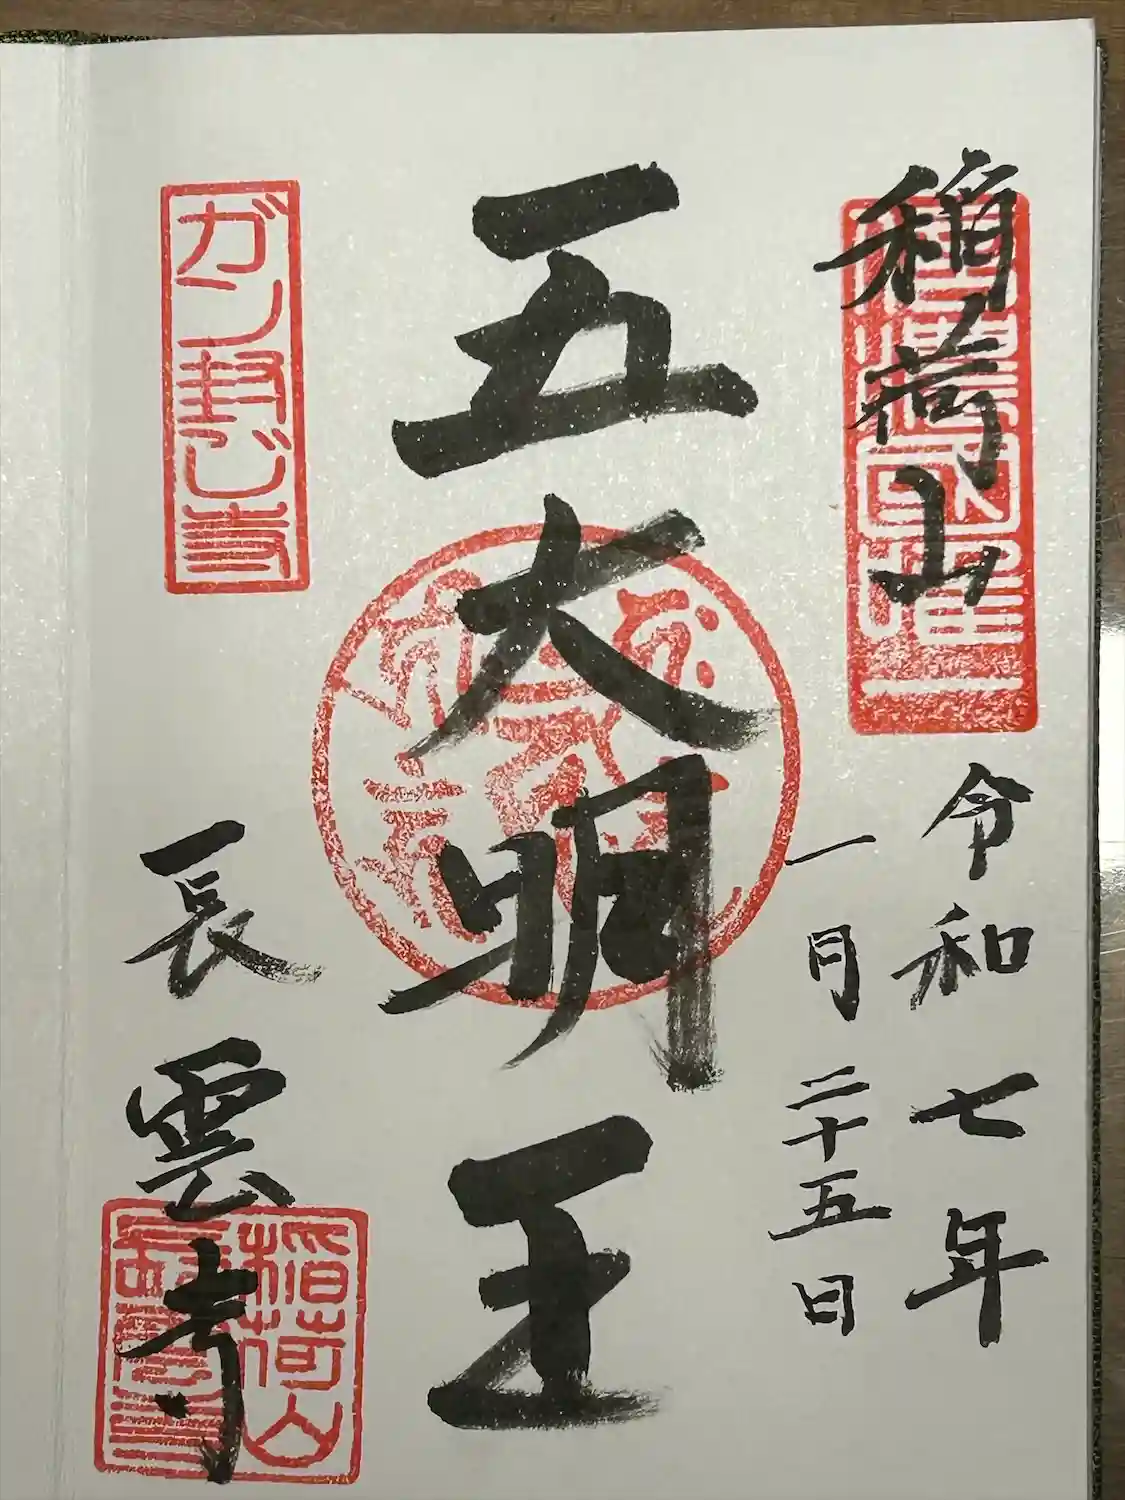 稲荷山
令和七年
一月二十五日
五大明王
ガン封じ寺
長雲寺
稲荷山
長雲寺